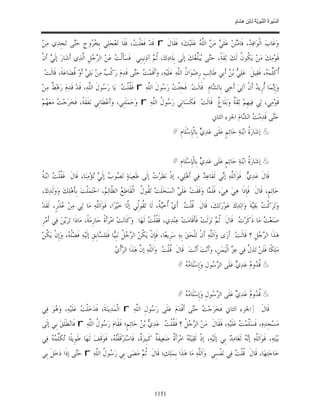 السيرة النبوية لابن هشام
وَغَابَ الْوَافِدُ، فَامْنُنْ عَلَيَّ مَنَّ اللَّهُ عَلَيْكَ؛ فَقَالَ قَدْ فَعَلْتُ، فَلَا تَعْجَلِي بِخُرُوجٍ حَتَّى تَجِدِي مِنْ
قَوْمِكِ مَنْ يَكُونُ لَكَ ثِقَةً، حَتَّى يُبَلِّغَكَ إلَى بِلَادِكَ، ثُمَّ آذِنِينِي. فَسَأَلْتُ عَنْ الرَّجُلِ الَّذِي أَشَارَ إلَيَّ أَنْ
أُكَلِّمَهُ، فَقِيلَ عَلِيُّ بْنُ أَبِي طَالِبٍ رِضْوَانُ اللَّهِ عَلَيْهِ، وَأَقَمْتُ حَتَّى قَدِمَ رَكْبٌ مِنْ بَلِيٍّ أَوْ قُضَاعَةَ، قَالَتْ:
وَإِنَّمَا أُرِيدُ أَنْ آتِيَ أَخِي بِالشَّامِ. قَالَتْ: فَجِئْتُ رَسُولَ اللَّهِ فَقُلْتُ: يَا رَسُولَ اللَّهِ، قَدْ قَدِمَ رَهْطٌ مِنْ
قَوْمِي، لِي فِيهِمْ ثِقَةٌ وَبَلَاغٌ. قَالَتْ: فَكَسَانِي رَسُولُ اللَّهِ وَحَمَلَنِي، وَأَعْطَانِي نَفَقَةً، فَخَرَجْتُ مَعَهُمْ
حَتَّى قَدِمْتُ الشَّامَ الجزء الثاني
إشَارَةُ ابْنَةِ حَاتِمٍ عَلَى عَدِيٍّ بِالْإِسْلَامِ
إشَارَةُ ابْنَةِ حَاتِمٍ عَلَى عَدِيٍّ بِالْإِسْلَامِ
قَالَ عَدِيٌّ: فَوَاَللَّهِ إنِّي لَقَاعِدٌ فِي أَهْلِي، إذْ نَظَرْتُ إلَى ظَعِينَةٍ تَصُوبُ إلَيَّ تَؤُمُّنَا، قَالَ: فَقُلْتُ ابْنَةُ
حَاتِمٍ، قَالَ: فَإِذَا هِيَ هِيَ، فَلَمَّا وَقَفَتْ عَلَيَّ انْسَحَلَتْ تَقُولُ: الْقَاطِعُ الظَّالِمُ، احْتَمَلْتَ بِأَهْلِكَ وَوَلَدِكَ،
وَتَرَكْتَ بَقِيَّةَ وَالِدِكَ عَوْرَتَكَ، قَالَ: قُلْتُ: أَيْ أُخَيَّةُ، لَا تَقُولِي إلَّا خَيْرًا، فَوَاَللَّهِ مَا لِي مِنْ عُذْرٍ، لَقَدْ
صَنَعْتُ مَا ذَكَرْتِ. قَالَ: ثُمَّ نَزَلَتْ فَأَقَامَتْ عِنْدِي، فَقُلْتُ لَهَا: وَكَانَتْ امْرَأَةً حَازِمَةً، مَاذَا تَرَيْنَ فِي أَمْرِ
هَذَا الرَّجُلِ ؟ قَالَتْ: أَرَى وَاَللَّهِ أَنْ تَلْحَقَ بِهِ سَرِيعًا، فَإِنْ يَكُنْ الرَّجُلُ نَبِيًّا فَلِلسَّابِقِ إلَيْهِ فَضْلُهُ، وَإِنْ يَكُنْ
مَلِكًا فَلَنْ تَذِلَّ فِي عِزِّ الْيَمَنِ، وَأَنْتَ أَنْتَ. قَالَ: قُلْتُ: وَاَللَّهِ إنَّ هَذَا الرَّأْيُ.
قُدُومُ عَدِيٍّ عَلَى الرَّسُولِ وَإِسْلَامُهُ
قُدُومُ عَدِيٍّ عَلَى الرَّسُولِ وَإِسْلَامُهُ
قَالَ: (الجزء الثاني فَخَرَجْتُ حَتَّى أَقْدَمَ عَلَى رَسُولِ اللَّهِ الْمَدِينَةَ، فَدَخَلْتُ عَلَيْهِ، وَهُوَ فِي
مَسْجِدِهِ، فَسَلَّمْتُ عَلَيْهِ، فَقَالَ: مَنْ الرَّجُلُ ؟ فَقُلْتُ: عَدِيُّ بْنُ حَاتِمٍ؛ فَقَامَ رَسُولُ اللَّهِ فَانْطَلَقَ بِي إلَى
بَيْتِهِ، فَوَاَللَّهِ إنَّهُ لَعَامِدٌ بِي إلَيْهِ، إذْ لَقِيَتْهُ امْرَأَةٌ ضَعِيفَةٌ كَبِيرَةٌ، فَاسْتَوْقَفَتْهُ، فَوَقَفَ لَهَا طَوِيلًا تُكَلِّمُهُ فِي
حَاجَتِهَا، قَالَ: قُلْتُ فِي نَفْسِي: وَاَللَّهِ مَا هَذَا بِمَلِكٍ؛ قَالَ: ثُمَّ مَضَى بِي رَسُولُ اللَّهِ حَتَّى إذَا دَخَلَ بِي
1151